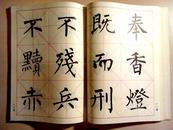 奉香燈
既而刑
不殘兵
不黷赤